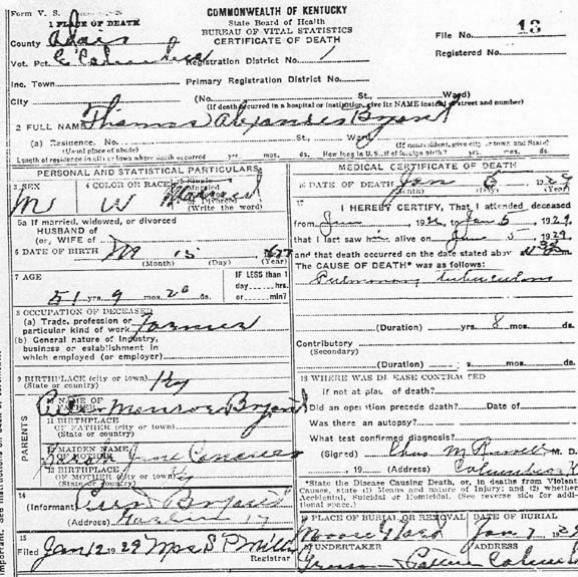 Form V. S.
COMMONWEALTH OF KENTUCKY
1 PLACE OF DEATH
State Board of Health
BUREAU OF VITAL STATISTICS
CERTIFICATE OF DEATH
County Adair
File No. 13
Vot. Pct. E Columbia Registration District No. 1
Registered No.
Inc. Town Primary Registration District No.
City (No. St., Ward)
(If death occurred in a hospital or institution, give its NAME instead of street and number)
2 FULL NAME Thomas Alexander Bryant
(a) Residence. No. St., Ward
(Usual place of abode) (If nonresident, give city or town and State)
Length of residence in city or town where death occurred yrs. mos. ds. How long in U.S., if of foreign birth? yrs. mos. ds.
PERSONAL AND STATISTICAL PARTICULARS
3 SEX 4 COLOR OR RACE
(Write the word)
M W Married
5a If married, widowed, or divorced
HUSBAND of
(or) WIFE of
6 DATE OF BIRTH 15 1877
(Month) (Day) (Year)
7 AGE IF LESS than 1
day hrs.
51 yrs. 9 mos. 20 ds. or min?
8 OCCUPATION OF DECEASED
(a) Trade, profession or
particular kind of work Farmer
(b) General nature of Industry,
business or establishment in
which employed (or employer)
9 BIRTHPLACE (city or town) Ky
(State or country)
PARENTS
10 NAME OF
FATHER Monroe Bryant
11 BIRTHPLACE
OF FATHER (city or town)
(State or country)
12 MAIDEN NAME
OF MOTHER Jane
13 BIRTHPLACE
OF MOTHER (city or town)
(State or country)
14
(Informant Bryant
(Address)
15
Filed Jan 12, 1929 Mrs S P Miller
Registrar
MEDICAL CERTIFICATE OF DEATH
16 DATE OF DEATH Jan 5 1929
(Month) (Day) (Year)
17
I HEREBY CERTIFY, That I attended deceased
from 19 to Jan 5, 1929,
that I last saw him alive on Jan 5 1929
and that death occurred on the date stated above
The CAUSE OF DEATH* was as follows:
Pulmonary tuberculosis
(Duration) yrs. 8 mos. ds.
Contributory
(Secondary)
(Duration) yrs. mos. ds.
18 WHERE WAS DISEASE CONTRACTED
If not at place of death?
Did an operation precede death? Date of
Was there an autopsy?
What test confirmed diagnosis?
(Signed) Chas M Russell M. D.
, 19 (Address) Columbia K
*State the Disease Causing Death, or, in deaths from Violent
Causes, state (1) Means and nature of Injury; and (2) whether
Accidental, Suicidal or Homicidal. (See reverse side for addi-
tional space.)
19 PLACE OF BURIAL OR REMOVAL DATE OF BURIAL
Jan 7 1929
20 UNDERTAKER ADDRESS